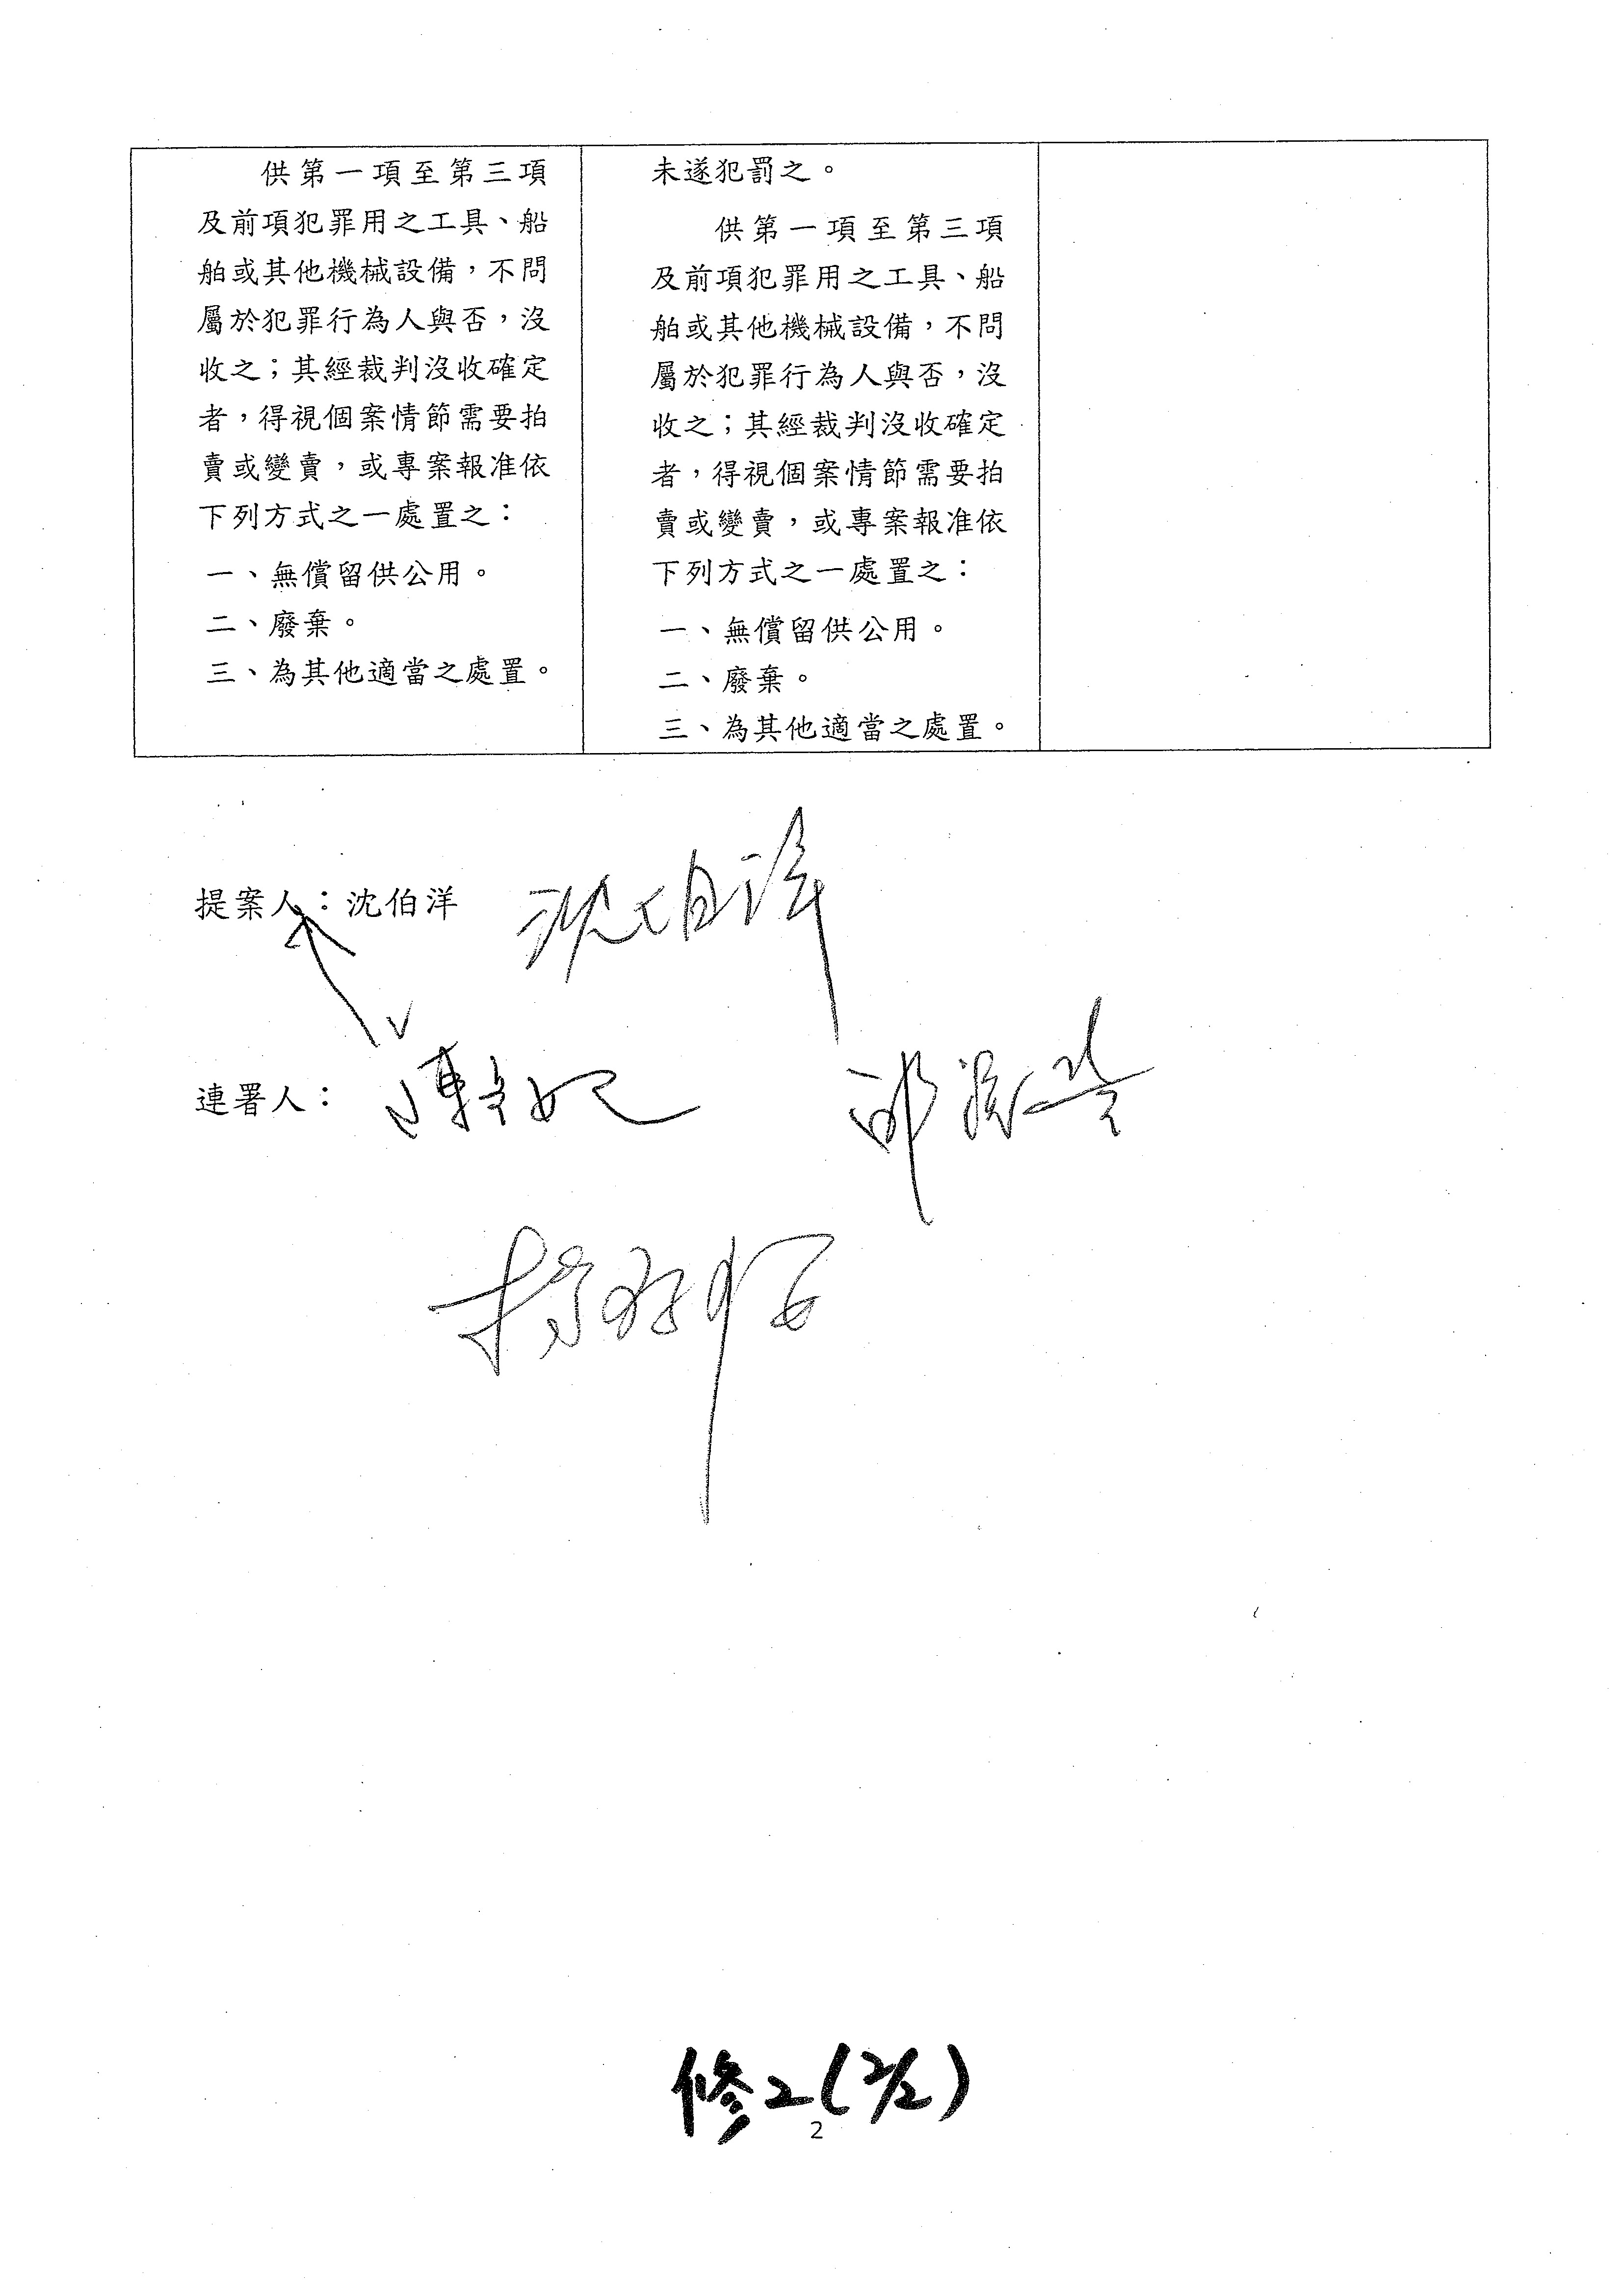 供第一項至第三項
及前項犯罪用之工具、船
舶或其他機械設備，不問
屬於犯罪行為人與否，沒
收之；其經裁判沒收確定
者，得視個案情節需要拍
賣或變賣，或專案報准依
下列方式之一處置之：
一、無償留供公用。
二、廢棄。
三、為其他適當之處置。
未遂犯罰之。
供第一項至第三項
及前項犯罪用之工具、船
舶或其他機械設備，不問
屬於犯罪行為人與否，沒
收之；其經裁判沒收確定
者，得視個案情節需要拍
賣或變賣，或專案報准依
下列方式之一處置之：
一、無償留供公用。
二、廢棄。
三、為其他適當之處置。
提案人：沈伯洋 沈伯洋
連署人：
修2(2/2)
2